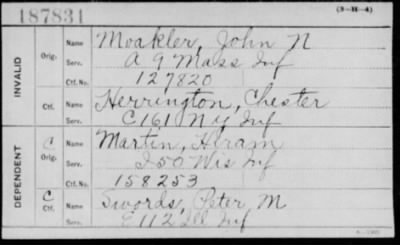 187831
(3-H-4)
INVALID
Orig.
Name Moakler, John N
Serv. A 9 Mass Inf
Ctf. No. 127820
Ctf.
Name Herrington, Chester
Serv. C 161 N Y Inf
DEPENDENT
C
Orig.
Name Martin, Hiram
Serv. I 50 Wis Inf
Ctf. No. 158253
C
Ctf.
Name Swords, Peter M
Serv. E 112 Ill Inf